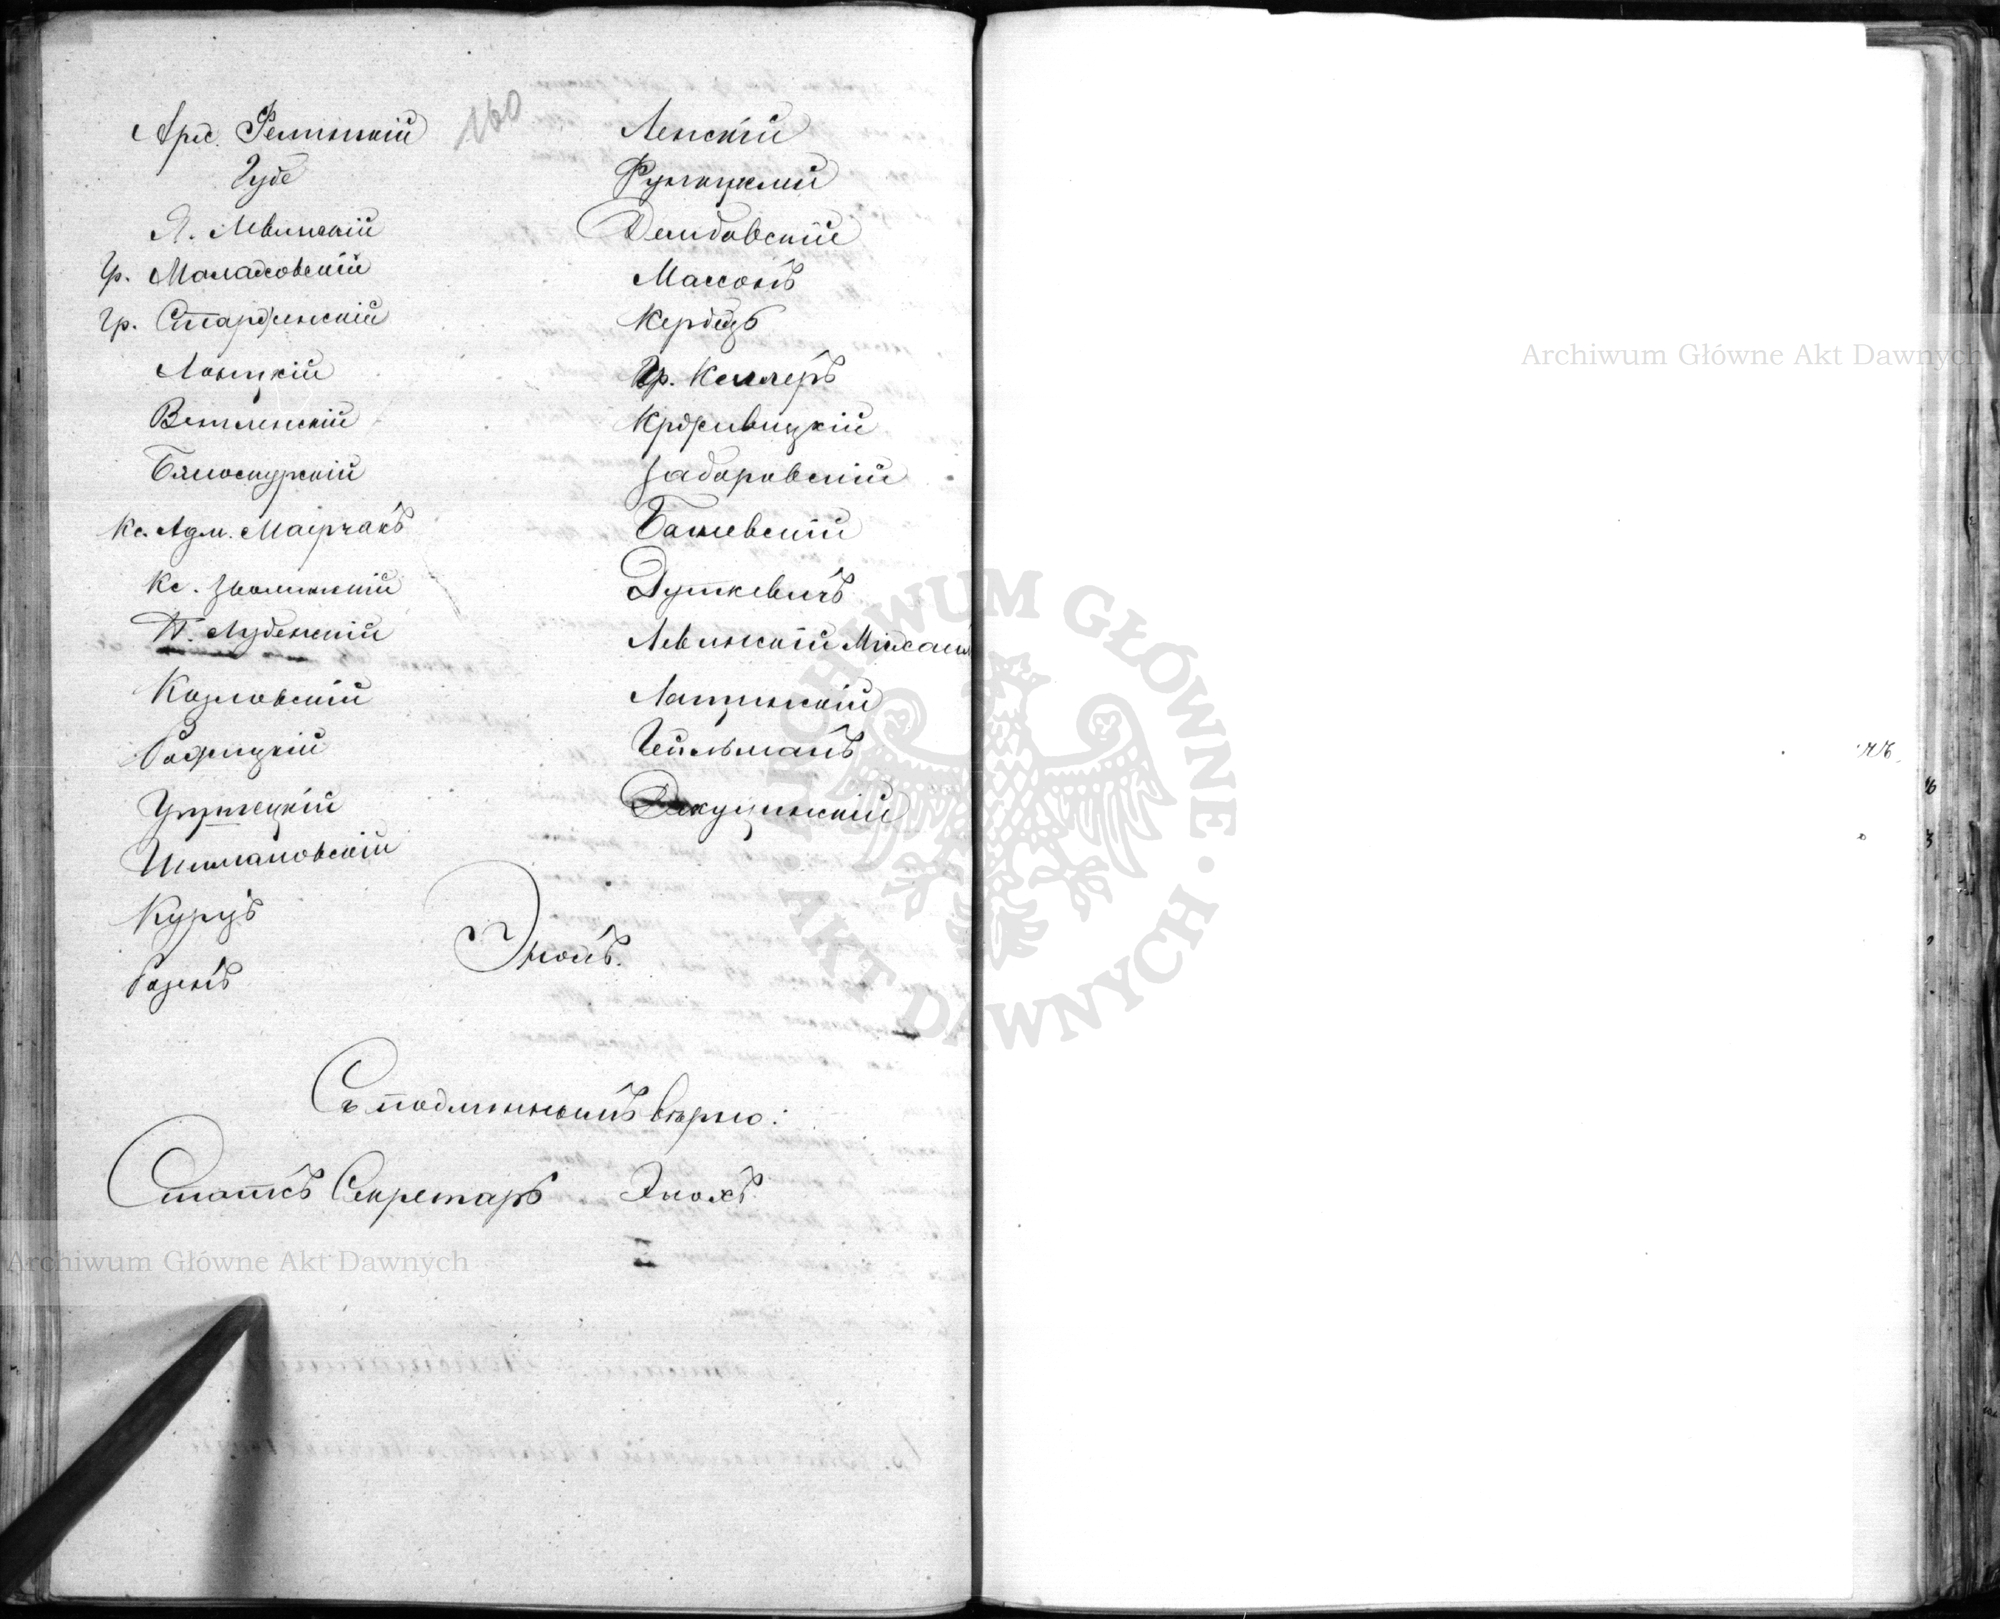 160
Арс. Фелинскій
Губе
Я. Левинскій
Гр. Малаховскій
Гр. Старженскій
Лонцкій
Венгленскій
Бялоскурскій
Кс. Адм. Маерчакъ
Кс. Зволинскій
П. Лубенскій
Козловскій
Рожицкій
Шимановскій
Куруъ
Розенъ
Ленскій
Фундуклей
Дембовскій
Массонъ
Кербедзъ
Гр. Келлеръ
Крживицкій
Заборовскій
Багневскій
Дуткевичъ
Левинскій Михаил
Лащинскій
Гейльманъ
Энохъ.
Съ подлиннымъ вѣрно:
Статсъ Секретарь Энохъ.
Archiwum Główne Akt Dawnych
Archiwum Główne Akt Dawnych
ARCHIWUM GŁÓWNE · AKT DAWNYCH ·